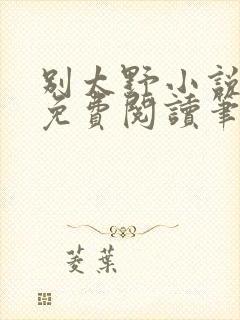 别太野小說
免費閱讀筆
菱葉